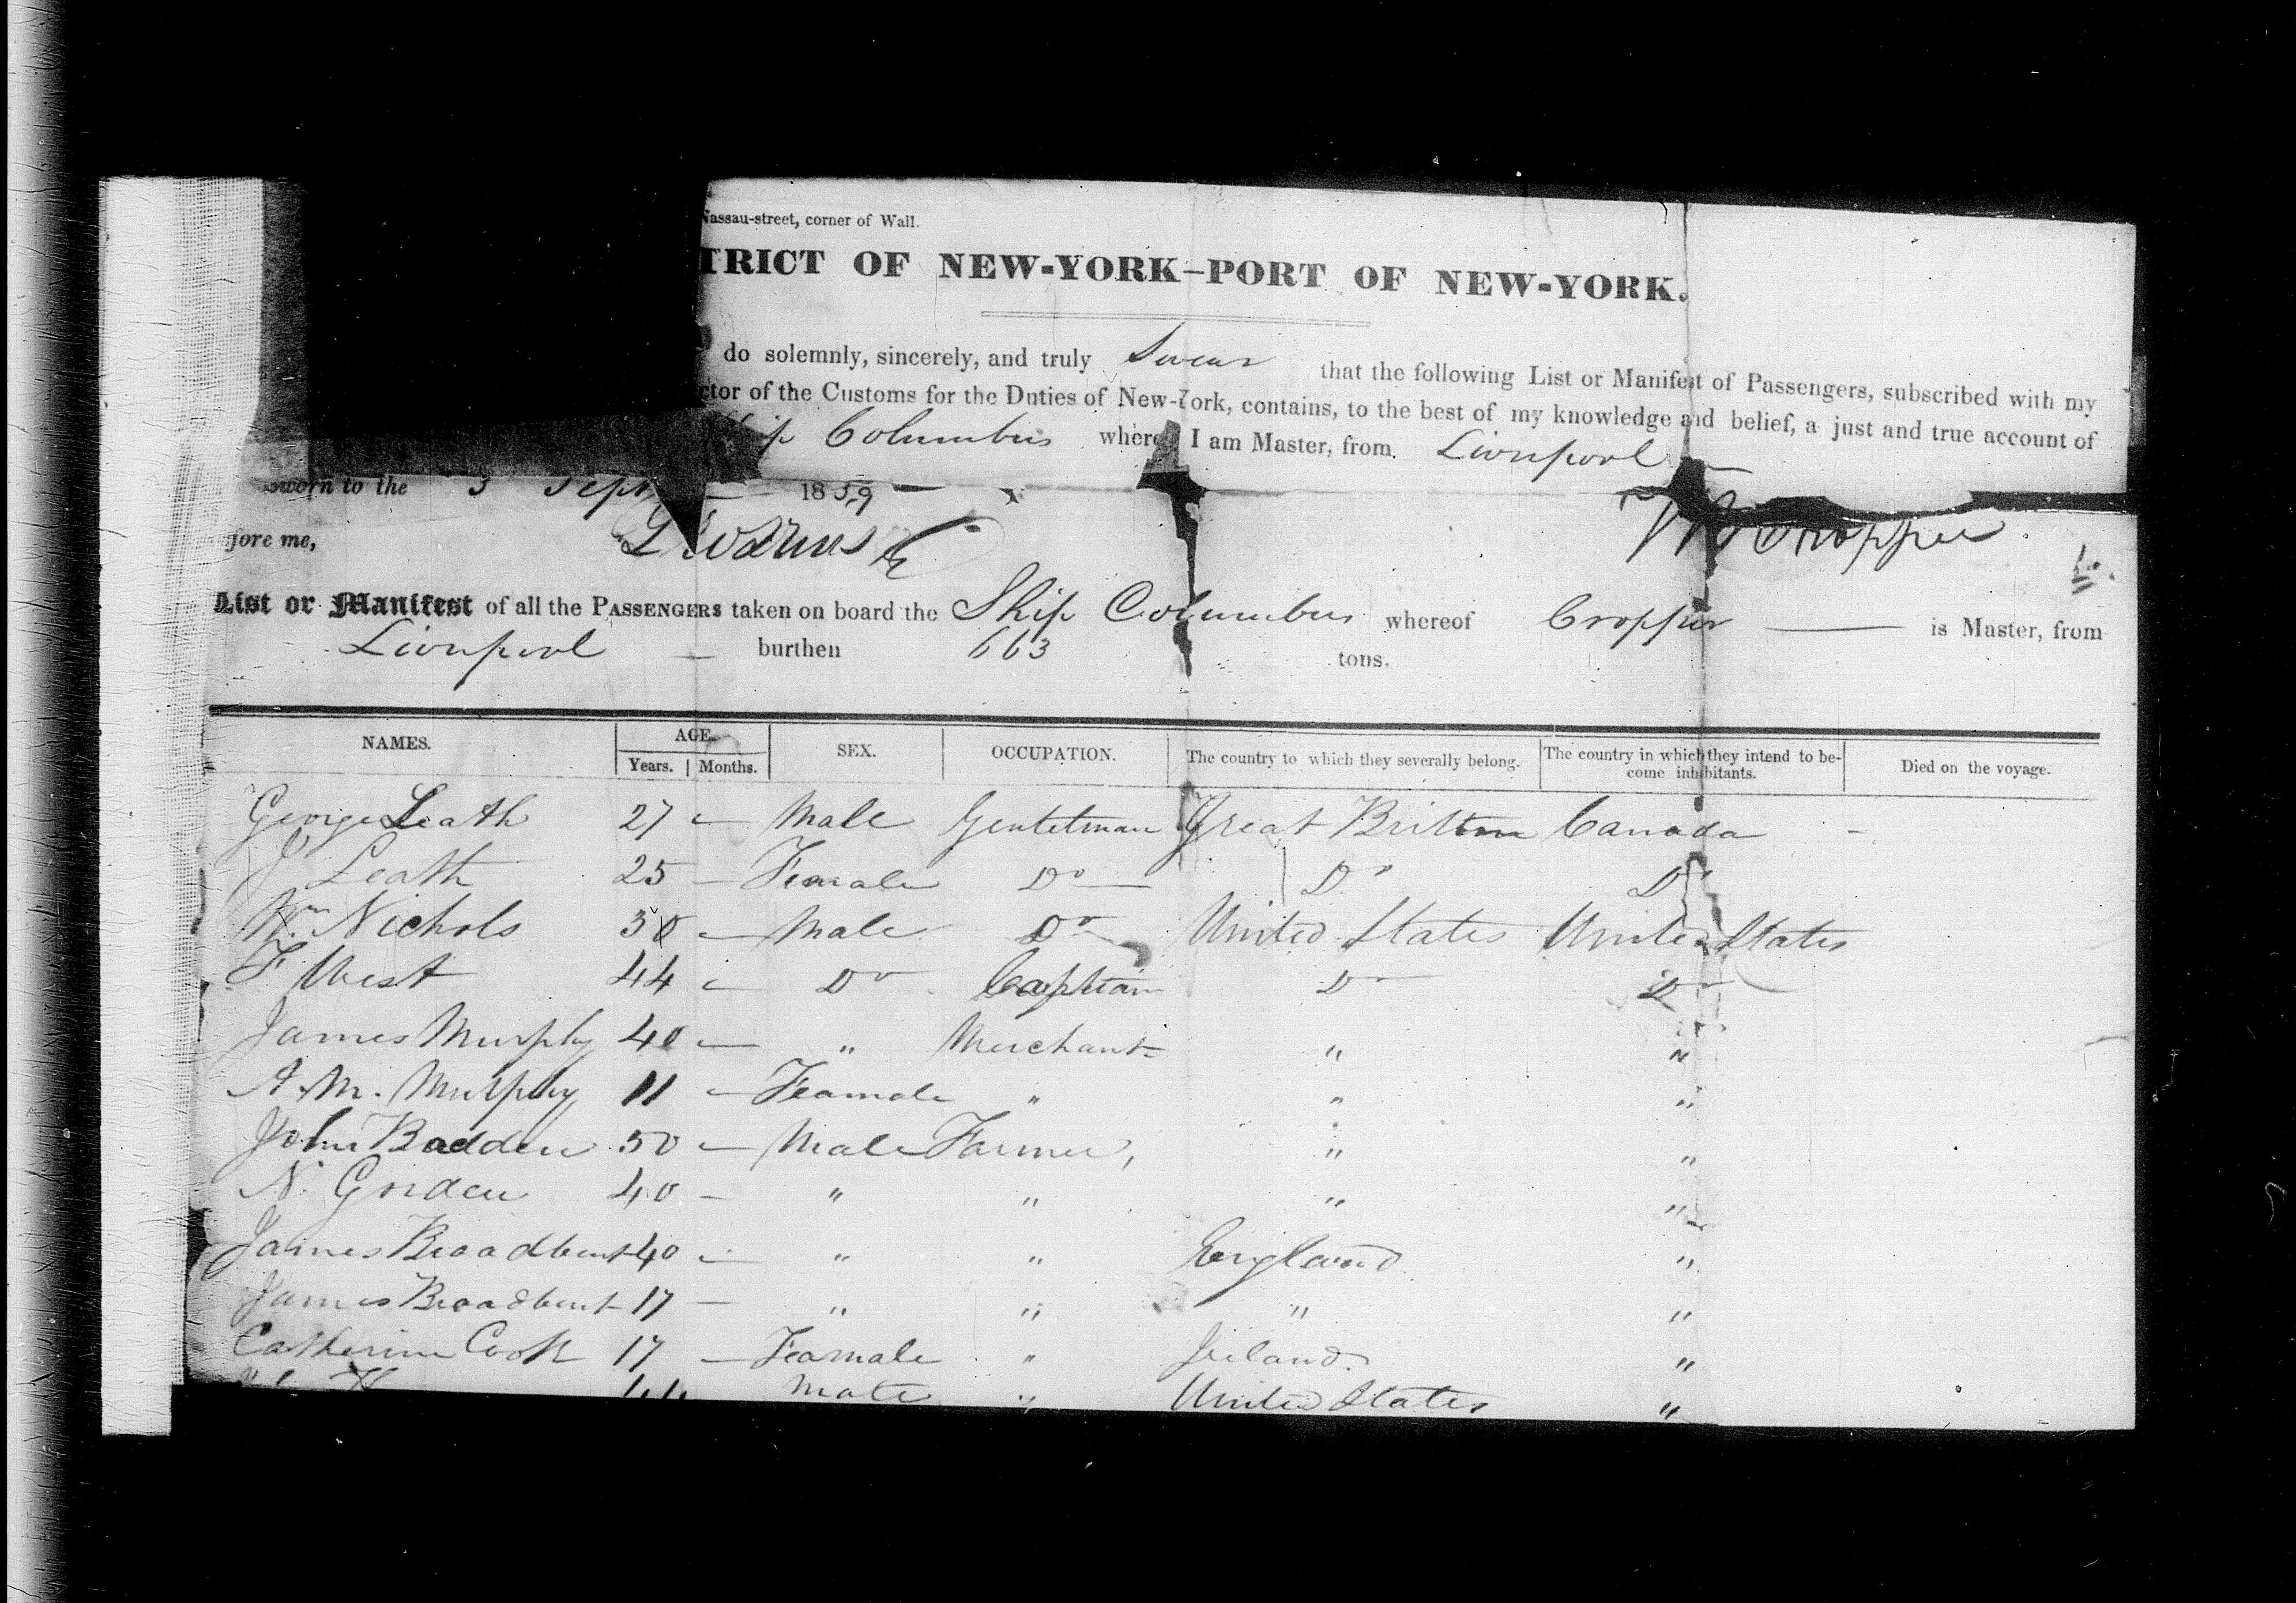 Nassau-street, corner of Wall.
TRICT OF NEW-YORK—PORT OF NEW-YORK.
do solemnly, sincerely, and truly Swear that the following List or Manifest of Passengers, subscribed with my
ctor of the Customs for the Duties of New-York, contains, to the best of my knowledge and belief, a just and true account of
Ship Columbus where I am Master, from Liverpool
Sworn to the 3 Sept 1839
fore me,
Cropper
List or Manifest of all the PASSENGERS taken on board the Ship Columbus whereof Cropper is Master, from
Liverpool burthen 663 tons.
NAMES. AGE. SEX. OCCUPATION. The country to which they severally belong. The country in which they intend to become inhabitants. Died on the voyage.
Years. Months.
George Leath 27 — Male Gentelman Great Britton Canada -
J Leath 25 — Female Do Do Do
Wm Nichols 30 — Male Do United States United States
F West 44 — Do Captian Do Do
James Murphy 40 — " Merchant " "
A. M. Murphy 11 — Feamale " " "
John Badden 50 — Male Farmer, " "
N. Gorden 40 — " " " "
James Broadbent 40 — " " England "
James Broadbent 17 — " " " "
Catherine Cook 17 — Feamale " Ireland. "
44 Male " United States "